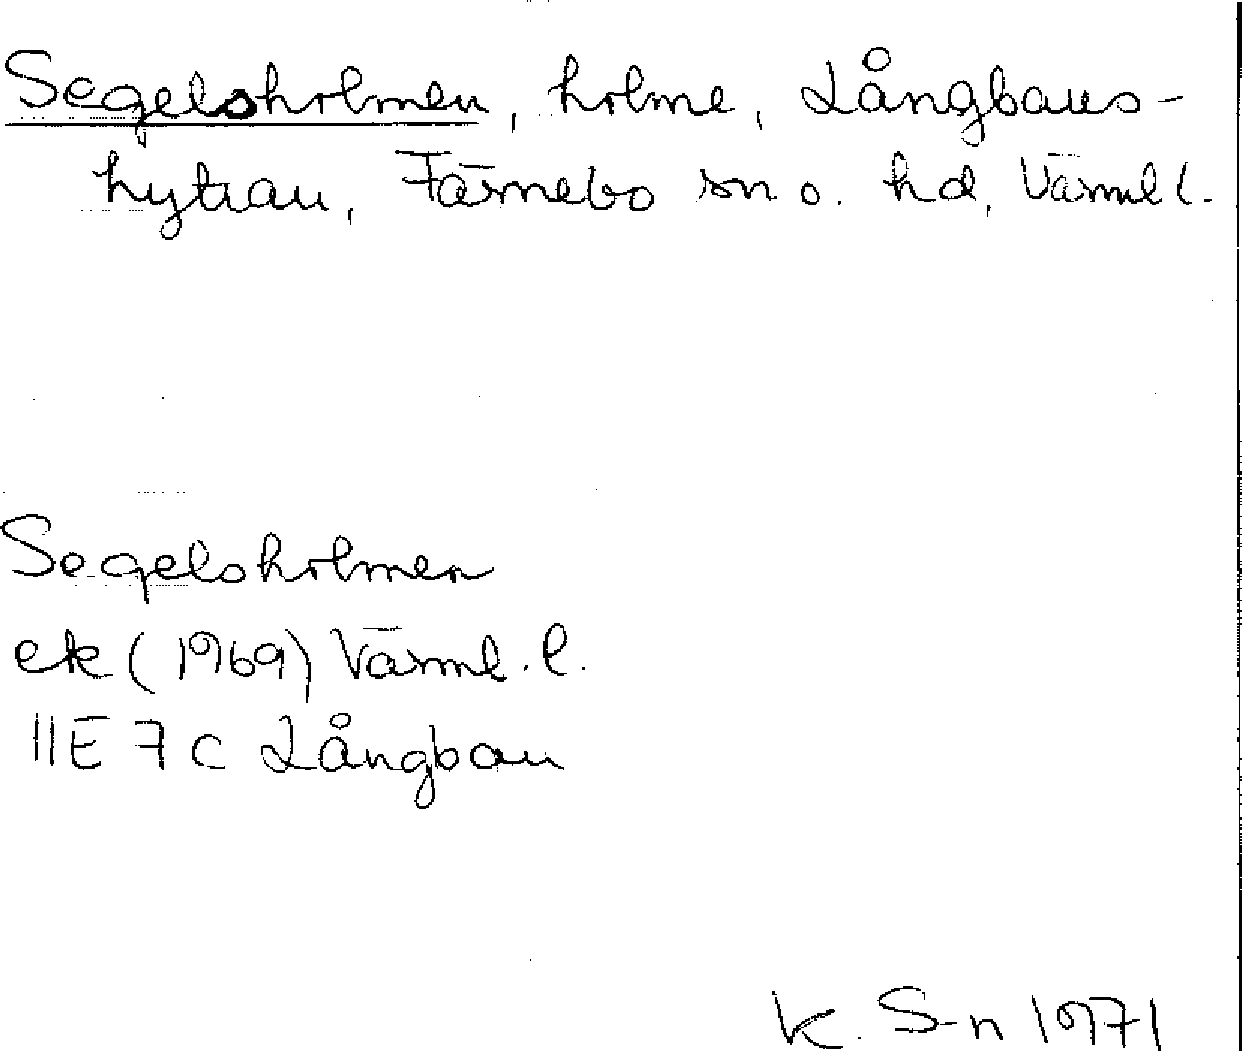 Segelsholmen, holme, Långbans-
hytan, Färnebo sn o. hd, Värml l.
Segelsholmen
ek (1969) Värml. l.
11E 7c Långban
K. S-n 1971